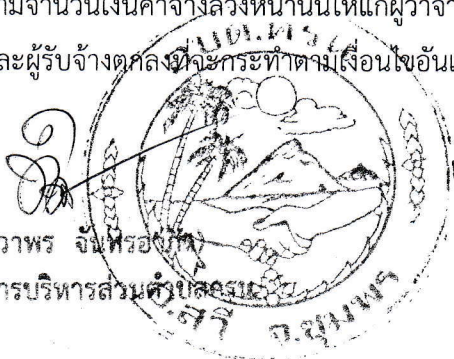 ามจำนวนเงินค่าจ้างล่วงหน้านั้นให้แก่ผู้ว่าจ้
ละผู้รับจ้างตกลงที่จะกระทำตามเงื่อนไขอันเ
อบต.ครน
วาพร
ารบริหารส่วนตำบลครน
อ.สวี จ.ชุมพร